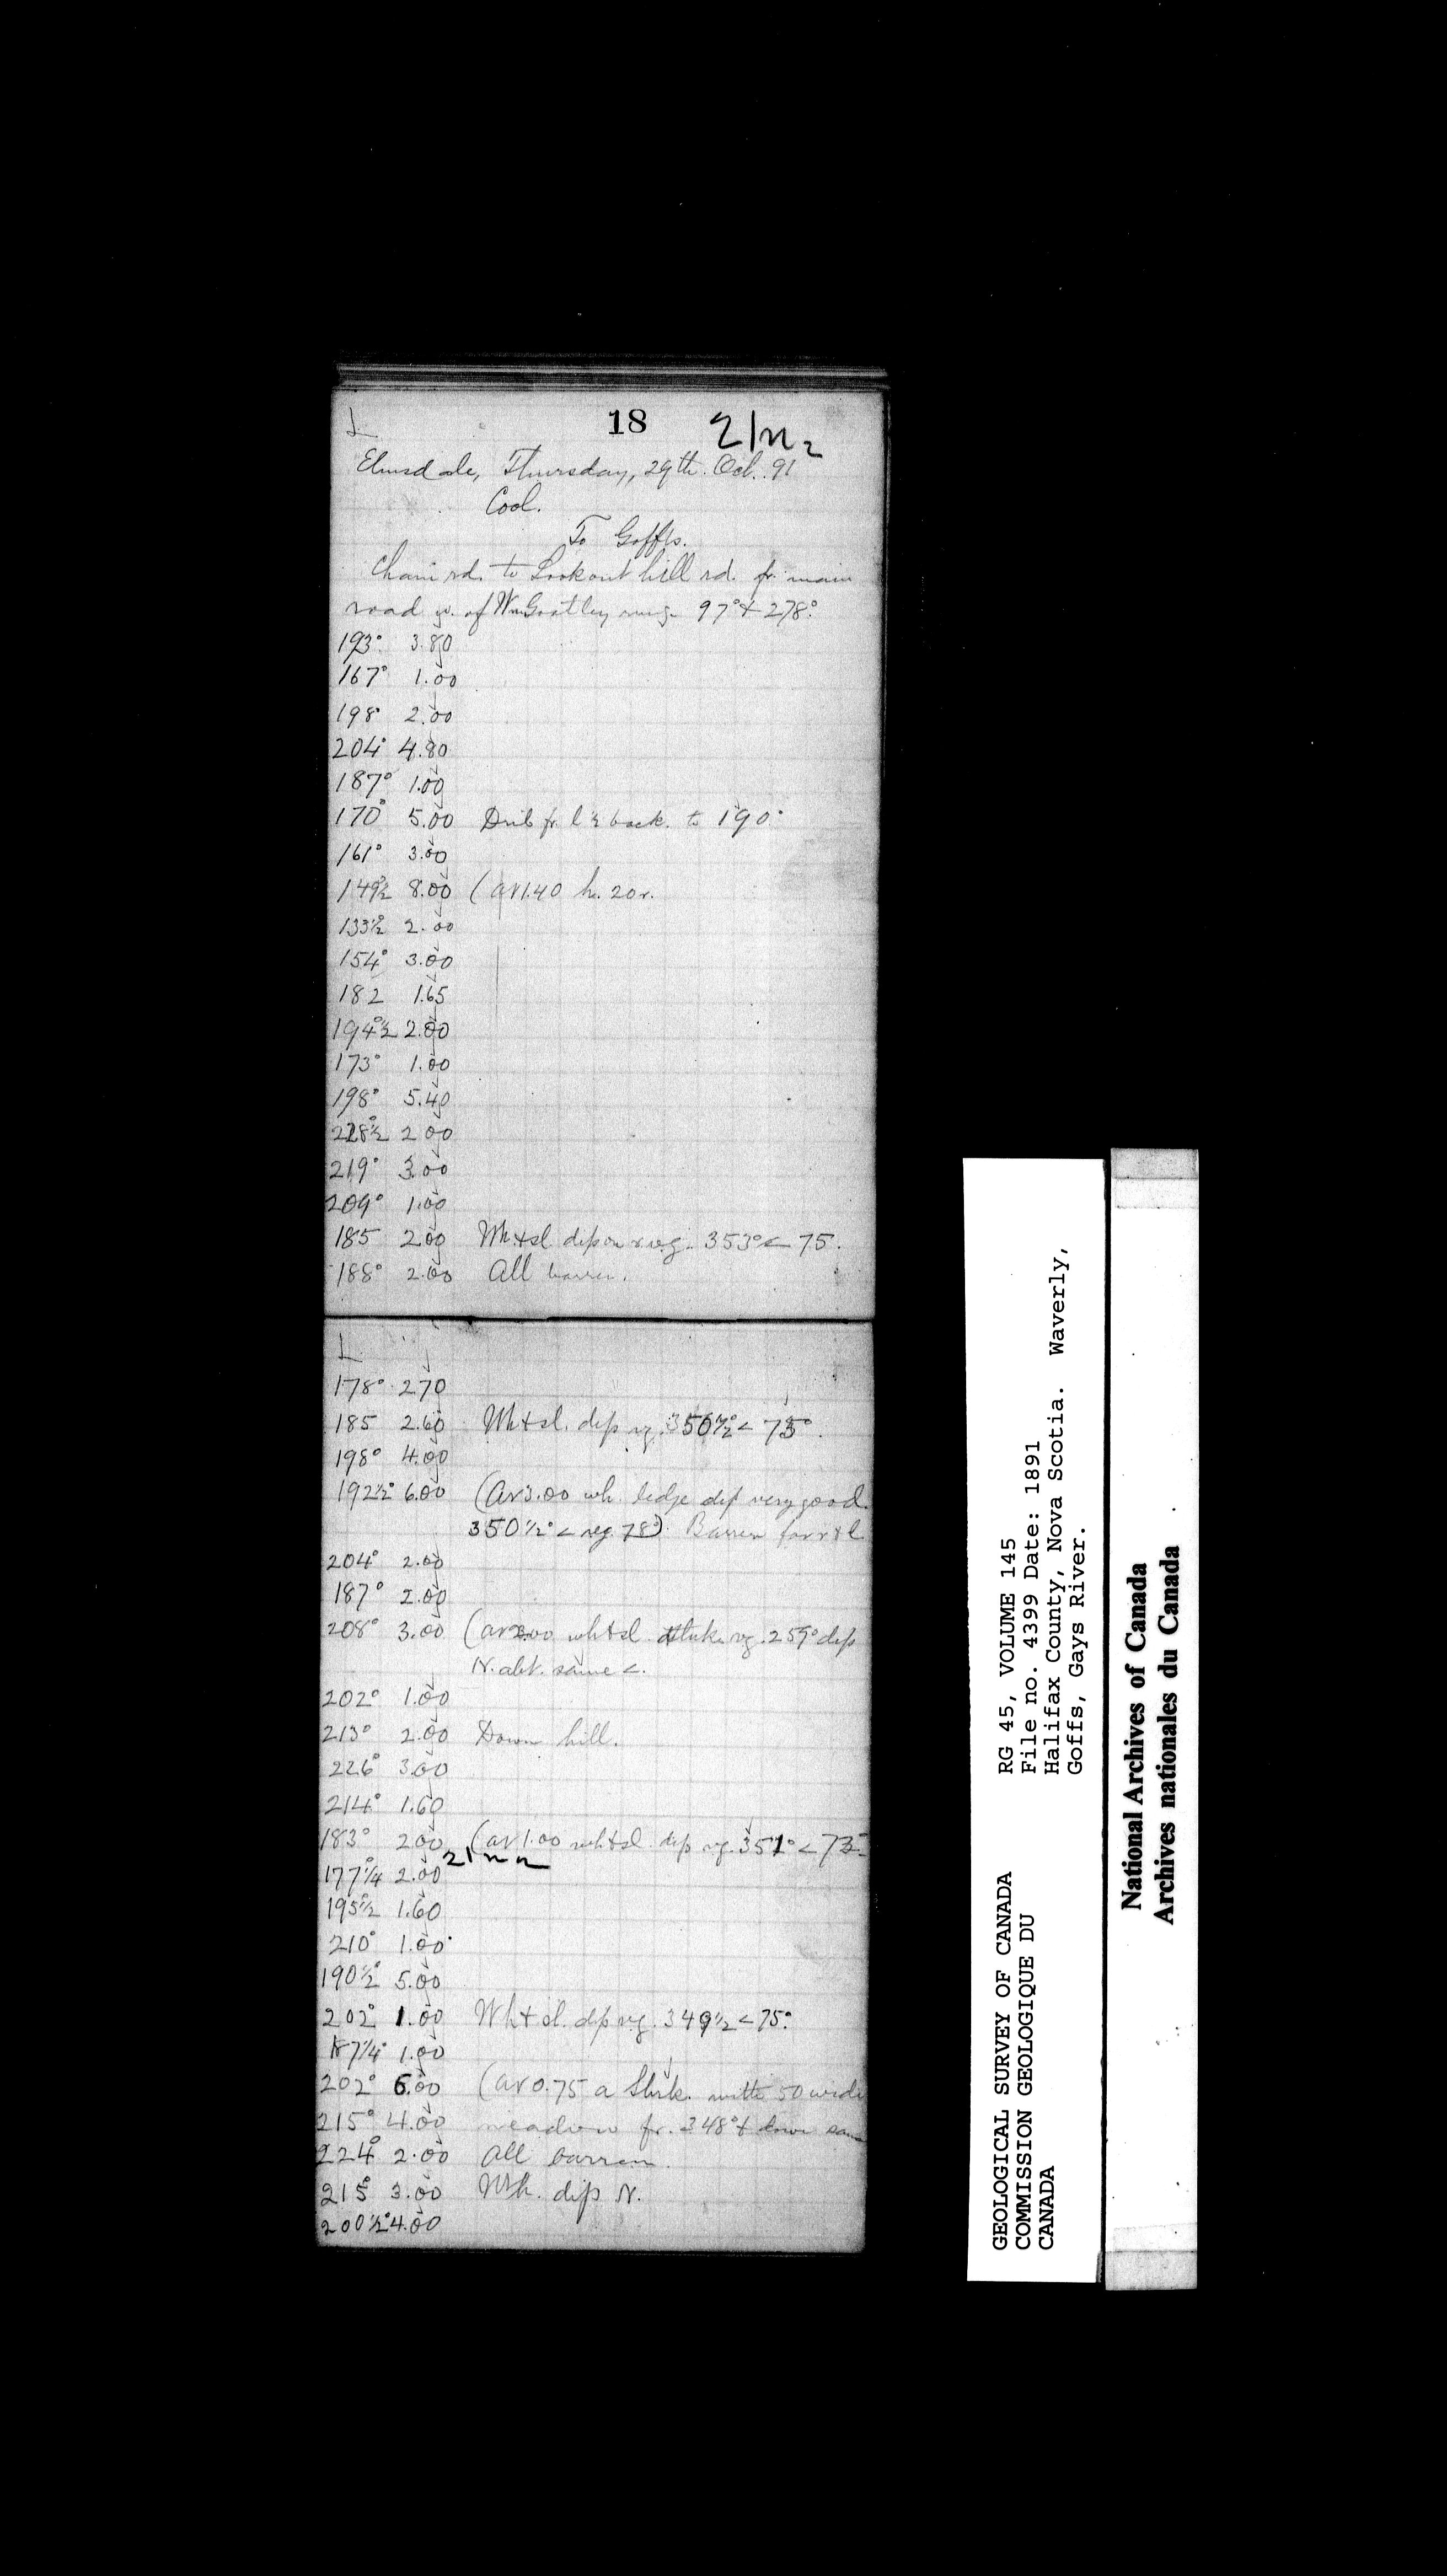 18
Elmsdale, Thursday, 29th. Oct. 91
Cool.
To Goffs.
Chain rd. to Lookout hill rd. fr. main
road w. of Wm 97° & 278°.
193° 3.80
167° 1.00
198° 2.00
204° 4.80
187° 1.00
170° 5.00 fr. back. to 190°
161° 3.00
149°½ 8.00 (ar 1.40 h. 20 r.
133°½ 2.00
154° 3.00
182 1.65
194°½ 2.00
173° 1.00
198° 5.40
228°½ 2 00
219° 3.00
209° 1.00
185 2.00 Wh. & sl. dip 353° < 75.
188° 2.00 All barren.
L
178° 2.70
185 2.60 Wh & sl. dip vg. 350½° < 75°.
198° 4.00
192½° 6.00 (Ar 3.00 wh. ledge dip very good.
350½° < reg. 78°) Barren far r & l
204° 2.00
187° 2.00
208° 3.00 (ar 2.00 wh & sl. strike vg. 259° dip
N. abt. same <.
202° 1.00
213° 2.00 Down hill.
226° 3.00
214° 1.60
183° 2.00 (ar 1.00 wh & sl. dip vg. 351° < 73°
177°¼ 2.00
195°½ 1.60
210° 1.00
190½° 5.00
202° 1.00 Wh & sl. dip vg. 349½ < 75°.
187¼° 1.00
202° 6.00 (ar 0.75 a with 50 wide
215° 4.00 meadow fr. 348° & down same
224° 2.00 All barren.
215° 3.00 Wh. dip N.
200½° 4.00
GEOLOGICAL SURVEY OF CANADA
COMMISSION GEOLOGIQUE DU
CANADA
RG 45, VOLUME 145
File no. 4399 Date: 1891
Halifax County, Nova Scotia. Waverly,
Goffs, Gays River.
National Archives of Canada
Archives nationales du Canada